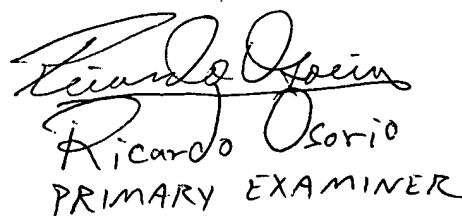 Ricardo Osorio
Ricardo Osorio
PRIMARY EXAMINER